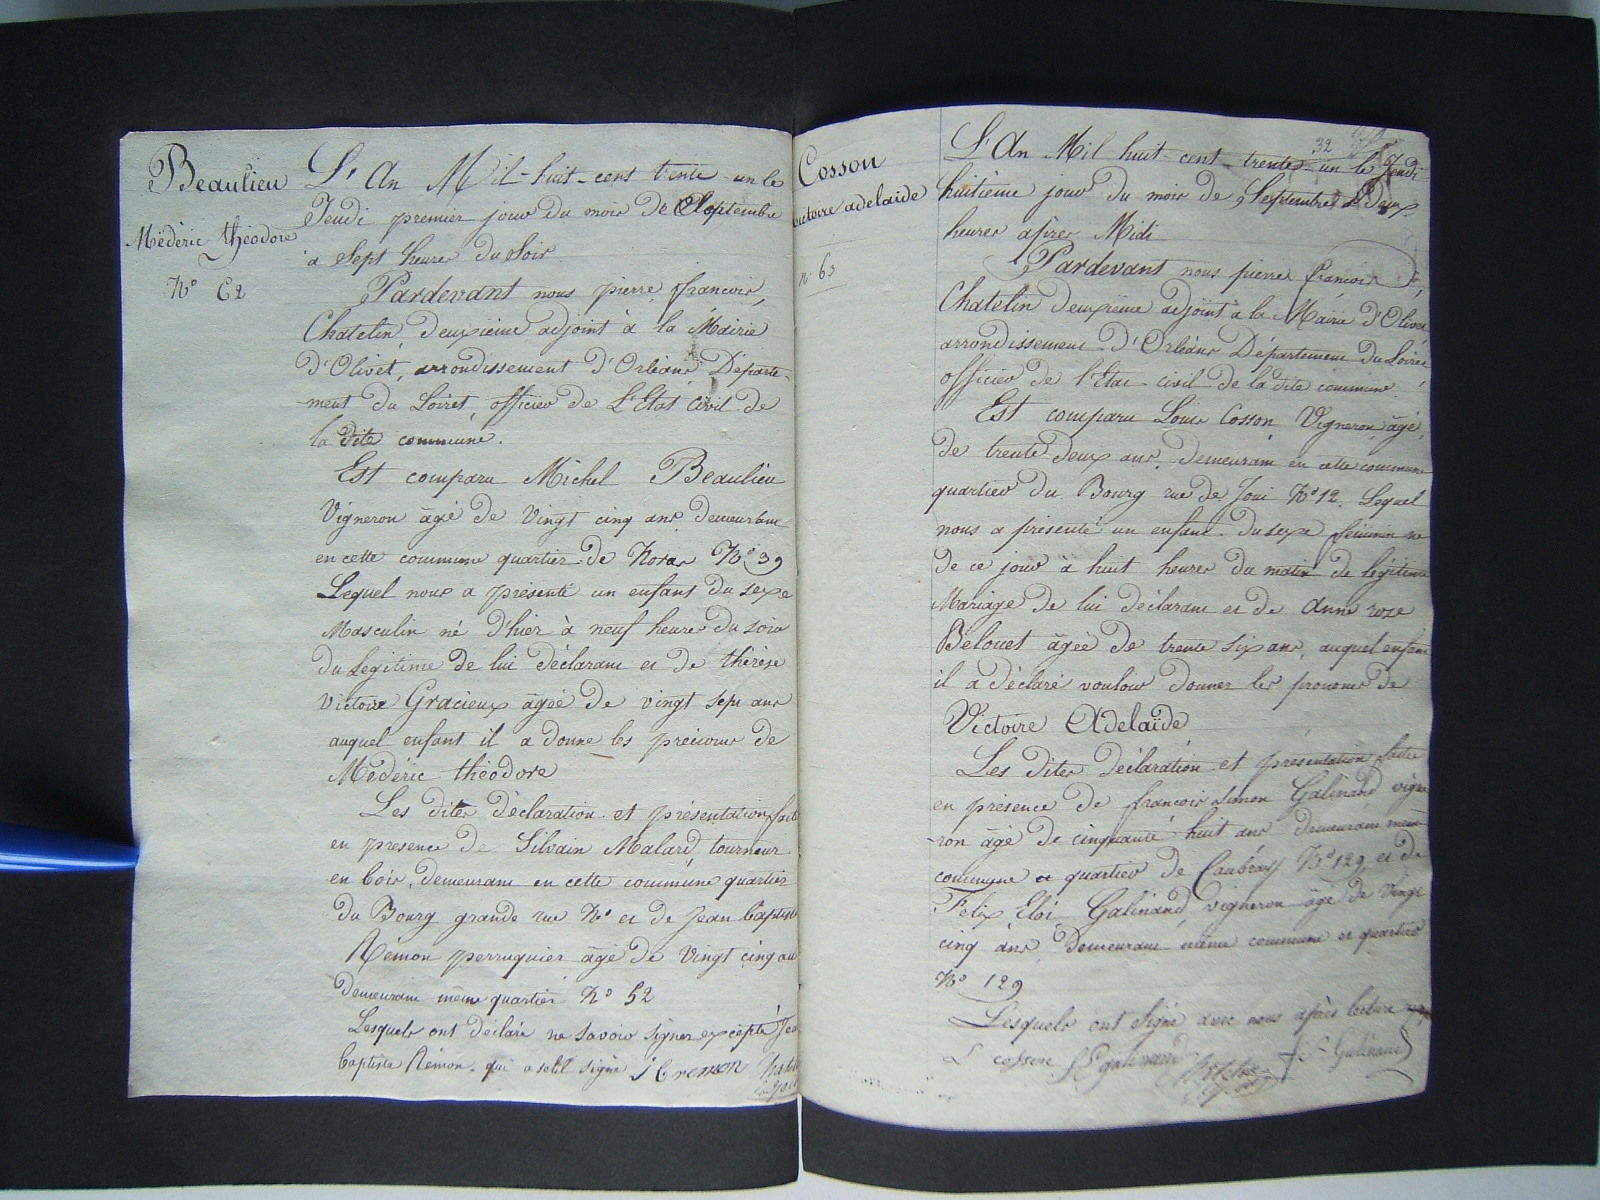 Beaulieu
Médéric théodore
N° 62
L'An Mil-huit-cent trente-un le
Jeudi premier jour du mois de Septembre
à Sept heures du Soir
Pardevant nous pierre françois,
Chatelin, deuxième adjoint à la Mairie
d'Olivet, arrondissement d'Orléans, Départe-
-ment du Loiret, officier de L'Etat Civil de
la dite commune.
Est comparu Michel Beaulieu
Vigneron âgé de Vingt cinq ans demeurant
en cette commune quartier de N° 39
Lequel nous a présenté un enfant du sexe
Masculin né d'hier à neuf heures du soir
du Légitime de lui déclarant et de thérèse
Victoire Gracieux âgée de vingt sept ans
auquel enfant il a donne les prénoms de
Médéric théodore
Les dites déclaration et présentation faite
en presence de Silvain Malard tourneur
en bois, demeurant en cette commune quartier
du Bourg grande rue N° et de Jean baptiste
Rémon perruquier âgé de Vingt cinq ans
demeurant même quartier N° 52
Lesquels ont déclaré ne savoir signer excepté Jean
baptiste Rémon. qui a seul signé
Cosson
victoire adelaide
n° 63
32
L'An Mil huit-cent-trente-un le Jeudi
huitième jour du mois de Septembre à deux
heures après Midi
Pardevant nous pierre françois
Chatelin deuxième adjoint à la Mairie d'Olivet
arrondissement d'Orléans Département du Loiret
officier de l'Etat civil de la dite commune.
Est comparu Louis Cosson Vigneron, âgé
de trente deux ans, demeurant en cette commune
quartier du Bourg rue de N° 12. Lequel
nous a présenté un enfant du sexe féminin né
de ce jour à huit heures du matin de légitime
Mariage de lui déclarant et de Anne rose
Bélouet âgée de trente six ans, auquel enfant
il a déclaré vouloir donner les prénoms de
Victoire Adelaïde
Les dites déclaration et présentation faite
en présence de françois simon Galinand vigne
-ron âgé de cinquante huit ans demeurant meme
commune et quartier de Caubray N° 129 et de
Felix Eloi Galinand vigneron âgé de vingt
cinq ans, demeurant même commune et quartier
N° 129
Lesquels ont signé avec nous après lecture
L cosson galinand Galinand